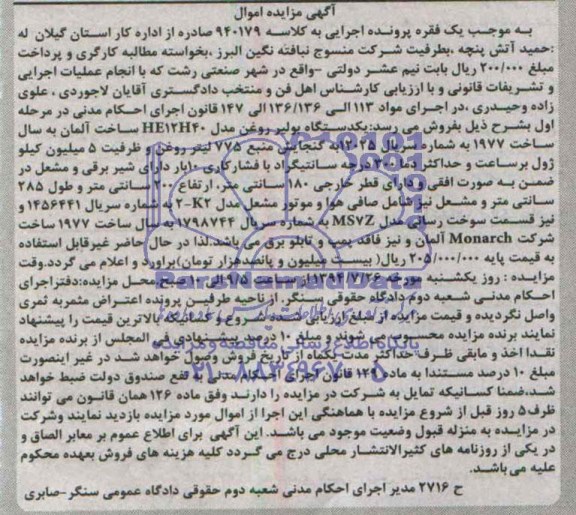 آگهی مزایده اموال
به موجب یک فقره پرونده اجرایی به کلاسه ۹۴۰۱۷۹ صادره از اداره کار استان گیلان له
:حمید آتش پنجه ،بطرفیت شرکت منسوج نبافته نگین البرز ،بخواسته مطالبه کارگری و پرداخت
مبلغ ۲۰۰/۰۰۰ ریال بابت نیم عشر دولتی -واقع در شهر صنعتی رشت که با انجام عملیات اجرایی
و تشریفات قانونی و با ارزیابی کارشناس اهل فن و منتخب دادگستری آقایان لاجوردی ، علوی
زاده وحیدری ،در اجرای مواد ۱۱۳ الی ۱۳۶/۱۳۶ الی ۱۴۷ قانون اجرای احکام مدنی در مرحله
اول بشرح ذیل بفروش می رسد:یکدستگاه بویلر روغن مدل HE12H40 ساخت آلمان به سال
ساخت ۱۹۷۷ به شماره سریال ۱۲۰۲۵ به گنجایش منبع ۷۷۵ لیتر روغن و ظرفیت ۵ میلیون کیلو
ژول برساعت و حداکثر دما ۳۰۰ درجه سانتیگراد با فشارکاری ۱۰بار دارای شیر برقی و مشعل در
ضمن به صورت افقی و دارای قطر خارجی ۱۸۰ سانتی متر، ارتفاع ۲۰۰ سانتی متر و طول ۲۸۵
سانتی متر و مشعل نیز شامل صافی هوا و موتور مشعل مدل K2-2 به شماره سریال ۱۴۵۶۴۴۱ و
نیز قسمت سوخت رسانی مدل MS7Z به شماره سریال ۱۷۹۸۷۴۴ به سال ساخت ۱۹۷۷ ساخت
شرکت Monarch آلمان و نیز فاقد پمپ و تابلو برق می باشد.لذا در حال حاضر غیرقابل استفاده
به قیمت پایه ۲۰۵/۰۰۰/۰۰۰ ریال( بیست میلیون و پانصدهزار تومان)براورد و اعلام می گردد.وقت
مزایده : روز یکشنبه مورخه ۱۳۹۴/۷/۲۶ از ساعت ۹/۵ الی صبح محل مزایده:دفتراجرای
احکام مدنی شعبه دوم دادگاه حقوقی سنگر، از ناحیه طرفین پرونده اعتراض مثمربه ثمری
واصل نگردیده و قیمت مزایده از مبلغ ارزیابی شده شروع و کسانیکه بالاترین قیمت را پیشنهاد
نمایند برنده مزایده محسوب می شوند و مبلغ ۱۰ درصد پیشنهادی فی المجلس از برنده مزایده
نقدا اخذ و مابقی ظرف حداکثر مدت یکماه از تاریخ فروش وصول خواهد شد در غیر اینصورت
مبلغ ۱۰ درصد مستندا به ماده ۱۲۹ قانون اجرای احکام مدنی به نفع صندوق دولت ضبط خواهد
شد،ضمنا کسانیکه تمایل به شرکت در مزایده را دارند وفق ماده ۱۲۶ همان قانون می توانند
ظرف ۵ روز قبل از شروع مزایده با هماهنگی این اجرا از اموال مورد مزایده بازدید نمایند وشرکت
در مزایده به منزله قبول وضعیت موجود می باشد. این آگهی برای اطلاع عموم بر معابر الصاق و
در یکی از روزنامه های کثیرالانتشار محلی درج می گردد کلیه هزینه های فروش بعهده محکوم
علیه می باشد.
ح ۲۷۱۶ مدیر اجرای احکام مدنی شعبه دوم حقوقی دادگاه عمومی سنگر-صابری
ParsNamadData
۰۲۱-۸۸۳۴۹۶۷۰-۵